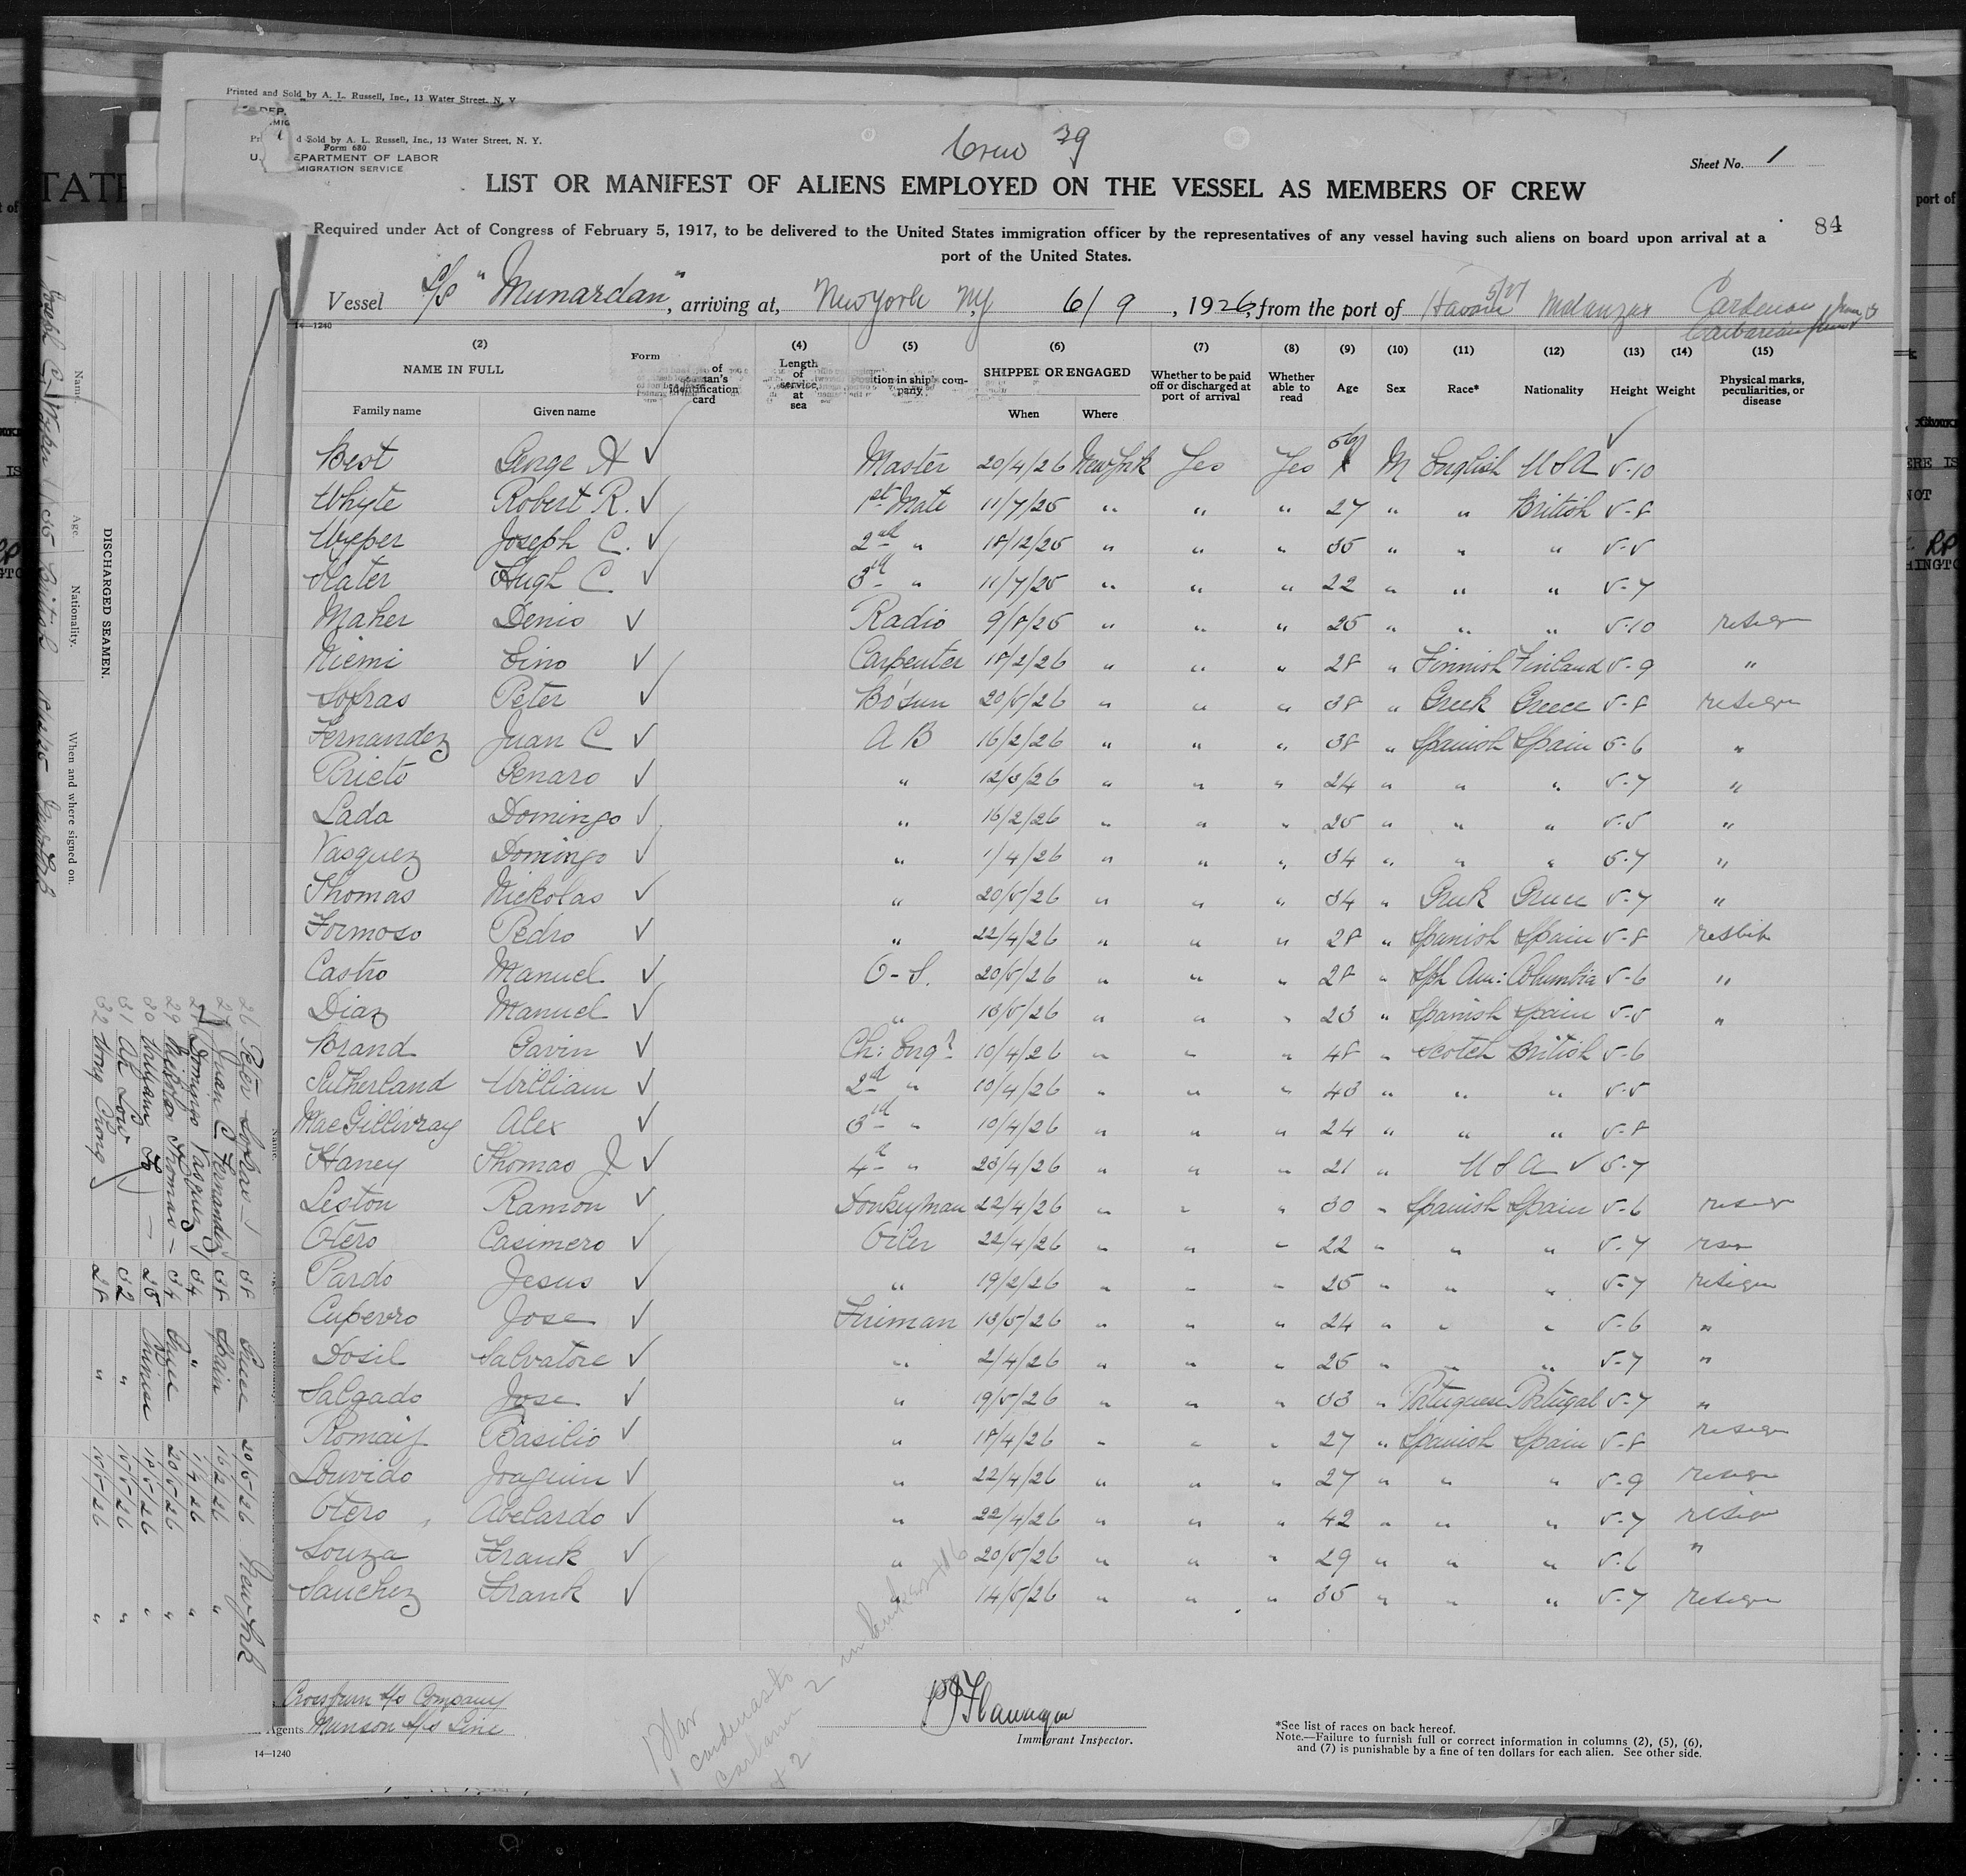 Printed and Sold by A. L. Russell, Inc., 13 Water Street, N. Y.
d Sold by A. L. Russell, Inc., 13 Water Street, N. Y.
Form 680
EPARTMENT OF LABOR
MIGRATION SERVICE
Crew 39
Sheet No. 1
LIST OR MANIFEST OF ALIENS EMPLOYED ON THE VESSEL AS MEMBERS OF CREW
84
Required under Act of Congress of February 5, 1917, to be delivered to the United States immigration officer by the representatives of any vessel having such aliens on board upon arrival at a
port of the United States.
Vessel S/S "Munardan", arriving at, New York N.Y. 6/9, 1926, from the port of Havana 5/27 Matanzas Cardenas
14—1240
(2) (4) (5) (6) (7) (8) (9) (10) (11) (12) (13) (14) (15)
NAME IN FULL Form Length of service at sea Position in ship's company SHIPPED OR ENGAGED Whether to be paid off or discharged at port of arrival Whether able to read Age Sex Race* Nationality Height Weight Physical marks, peculiarities, or disease
Family name Given name identification card When Where
Best George A ✓ Master 20/4/26 New York Yes Yes M English USA 5-10
Whyte Robert R. ✓ 1st Mate 11/7/25 " " " 27 " " British 5-8
Wyper Joseph C. ✓ 2nd " 18/12/25 " " " 35 " " " 5-5
Slater Hugh C ✓ 3rd " 11/7/25 " " " 22 " " " 5-7
Maher Denis ✓ Radio 9/8/25 " " " 25 " " " 5-10 resign
Niemi Eino ✓ Carpenter 18/2/26 " " " 28 " Finnish Finland 5-9 "
Sofras Peter ✓ Bo'sun 20/5/26 " " " 38 " Greek Greece 5-8 resign
Fernandez Juan C ✓ A B 16/2/26 " " " 38 " Spanish Spain 5-6 "
Prieto Genaro ✓ " 12/3/26 " " " 24 " " " 5-7 "
Lada Domingo ✓ " 16/2/26 " " " 25 " " " 5-5 "
Vasquez Domingo ✓ " 1/4/26 " " " 34 " " " 5-7 "
Thomas Nickolas ✓ " 20/5/26 " " " 34 " Greek Greece 5-7 "
Formoso Pedro ✓ " 22/4/26 " " " 28 " Spanish Spain 5-8
Castro Manuel ✓ O-S. 20/5/26 " " " 28 " Sph Am: Columbia 5-6 "
Diaz Manuel ✓ " 13/5/26 " " " 23 " Spanish Spain 5-5 "
Brand Gavin ✓ Ch: Engr 10/4/26 " " " 48 " Scotch British 5-6
Sutherland William ✓ 2nd " 10/4/26 " " " 43 " " " 5-5
MacGillivray Alex ✓ 3rd " 10/4/26 " " " 24 " " " 5-8
Haney Thomas J ✓ 4th " 23/4/26 " " " 21 " USA ✓ 5-7
Leston Ramon ✓ Donkeyman 22/4/26 " " " 30 " Spanish Spain 5-6 resign
Otero Casimero ✓ Oiler 22/4/26 " " " 22 " " " 5-7
Pardo Jesus ✓ " 19/2/26 " " " 25 " " " 5-7 resign
Cupeiro Jose ✓ Fireman 13/5/26 " " " 24 " " " 5-6 "
Dosil Salvatore ✓ " 2/4/26 " " " 25 " " " 5-7 "
Salgado Jose ✓ " 19/5/26 " " " 33 " Portuguese Portugal 5-7 "
Basilio ✓ " 18/4/26 " " " 27 " Spanish Spain 5-8 resign
Louvido Joaquin ✓ " 22/4/26 " " " 27 " " " 5-9 resign
Otero Abelardo ✓ " 22/4/26 " " " 42 " " " 5-7 resign
Souza Frank ✓ " 20/5/26 " " " 29 " " " 5-6 "
Sanchez Frank ✓ " 14/5/26 " " " 35 " " " 5-7 resign
S/S Company
Agents Munson S/S Line
14—1240
Immigrant Inspector.
*See list of races on back hereof.
Note.—Failure to furnish full or correct information in columns (2), (5), (6),
and (7) is punishable by a fine of ten dollars for each alien. See other side.
DISCHARGED SEAMEN.
Name. Age. Nationality. When and where signed on.
1 Joseph C. Wyper 35 British 18/12/25 New York
26 Peter Sofras 38 Greece 20/5/26 New York
27 Juan C Fernandez 38 Spain 16/2/26 "
28 Domingo Vasquez 34 " 1/4/26 "
29 Nickolas Thomas 34 Greece 20/5/26 "
30 25 Chinese 18/5/26 "
31 Ah Low 32 " 15/5/26 "
32 Wong Chong 28 " 15/5/26 "